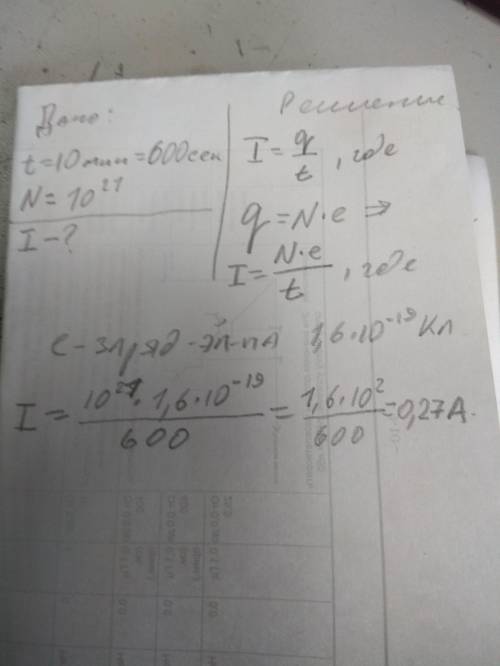 Дано:
t=10мин=600сек
N=10²¹
I-?
Решение
I=q/t, где
q=N·e ⇒
I=N·e/t, где
e-заряд-эл-на 1,6·10⁻¹⁹Кл
I=10²¹·1,6·10⁻¹⁹/600=1,6·10²/600=0,27А.